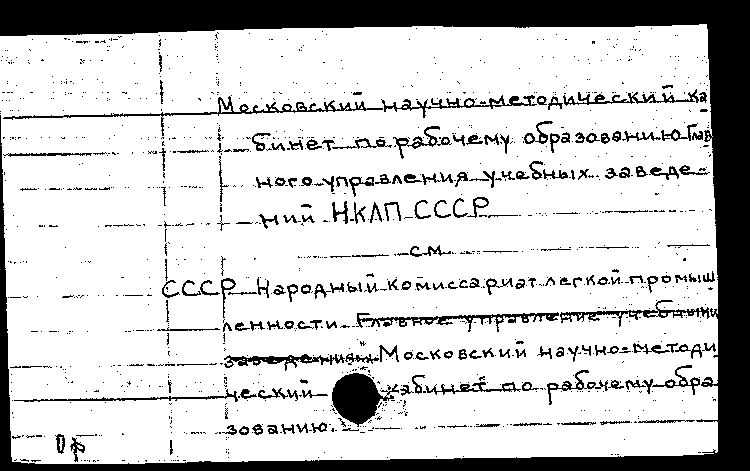 Московский научно-методический ка
бинет по рабочему образованию Глав
ного управления учебных заведе-
ний НКЛП СССР
см.
СССР Народный комиссариат легкой промыш
ленности. Главное управление учебными
заведениями. Московский научно-методи
ческий кабинет по рабочему обра
зованию.